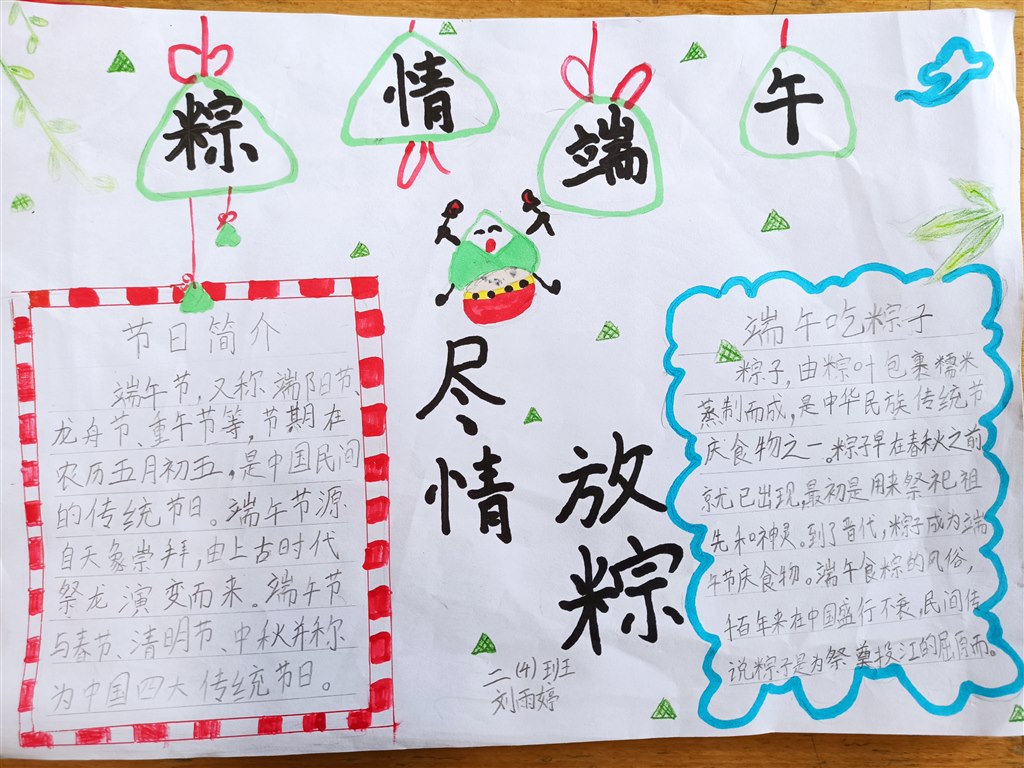 粽情端午
节日简介
端午节，又称端阳节、
龙舟节、重午节等，节期在
农历五月初五，是中国民间
的传统节日。端午节源
自天象崇拜，由上古时代
祭龙演变而来。端午节
与春节、清明节、中秋并称
为中国四大传统节日。
尽情
放粽
二（4）班
刘雨婷
端午吃粽子
粽子，由粽叶包裹糯米
蒸制而成，是中华民族传统节
庆食物之一。粽子早在春秋之前
就已出现，最初是用来祭祀祖
先和神灵。到了晋代，粽子成为端
午节庆食物。端午食粽的风俗，
千百年来在中国盛行不衰，民间传
说粽子是为祭奠投江的屈原而。